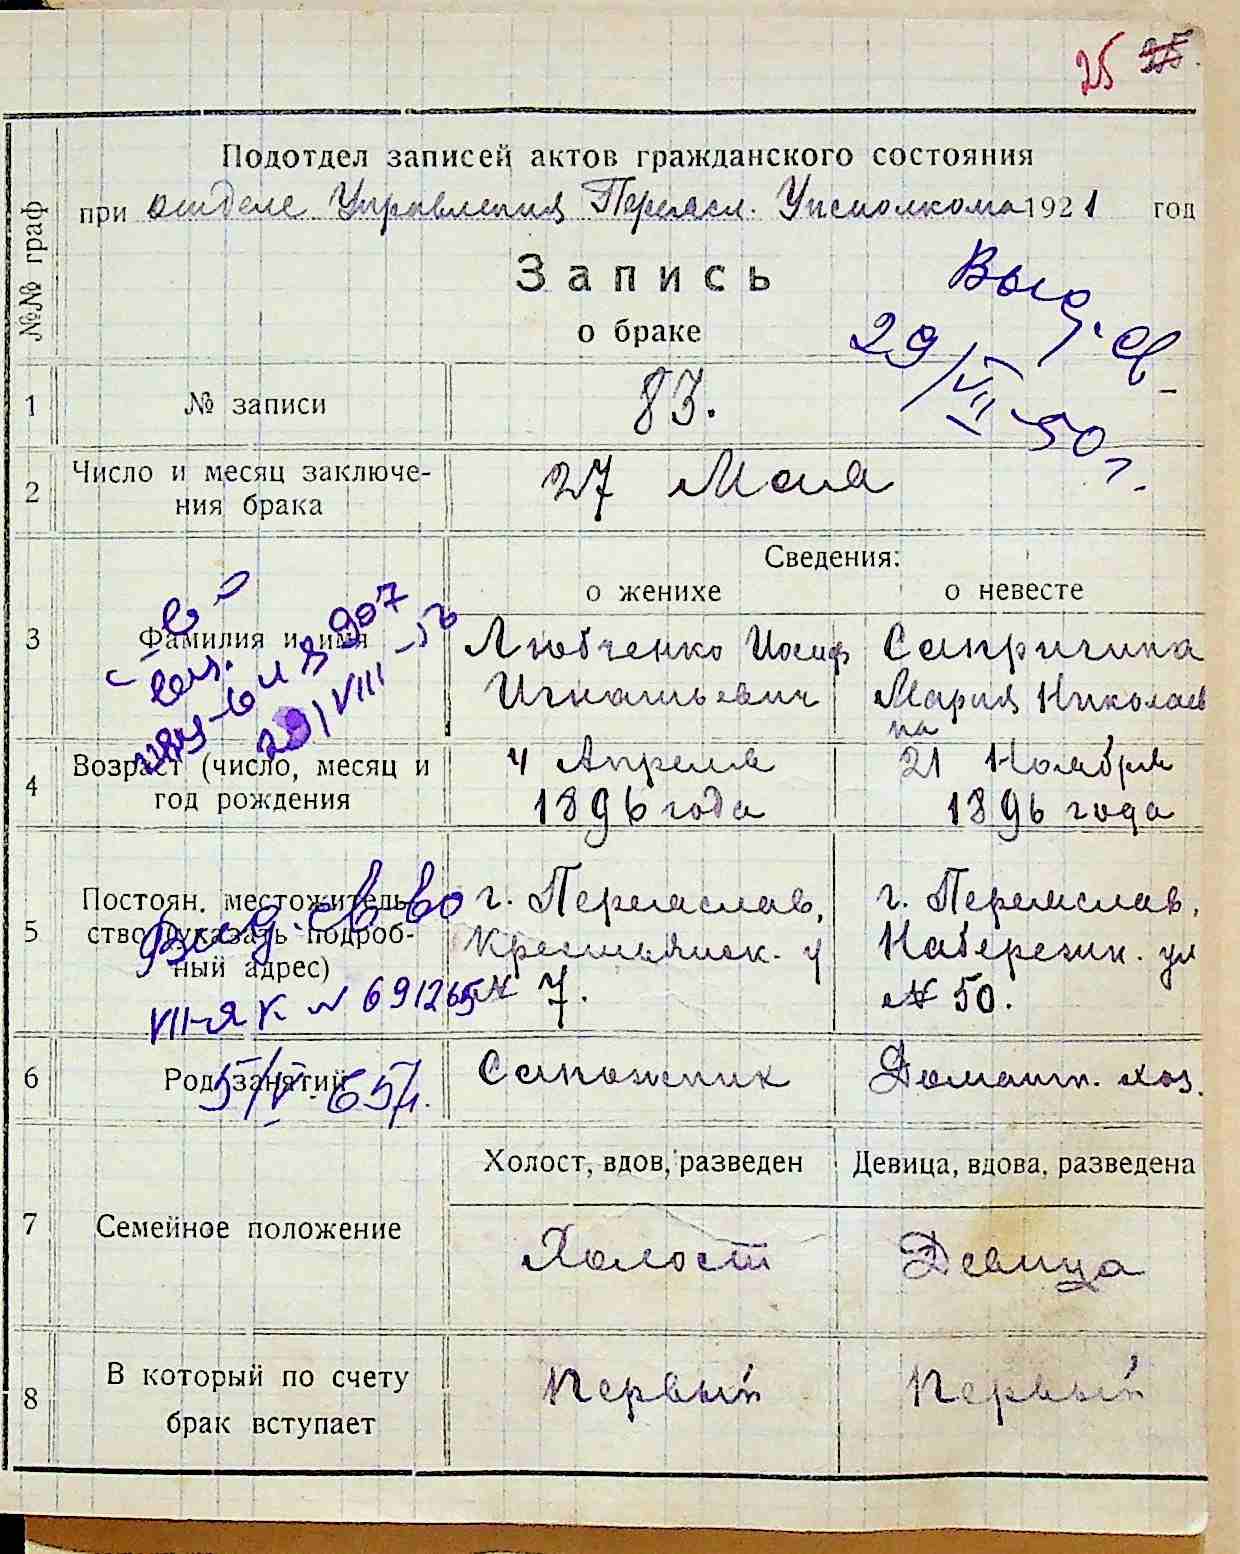 25 25.
Подотдел записей актов гражданского состояния
при отделе Управления Переясл. Уисполкома 1921 год
№№ граф
Запись
о браке
Выд. св.
29/VII-50 г.
1 № записи 83.
2 Число и месяц заключе-
ния брака 27 Мая
Сведения:
о женихе о невесте
3 Фамилия и имя Любченко Иосиф Сапригина
Игнатьевич Мария Николаев
на
29/VIII
4 Возраст (число, месяц и 4 Апреля 21 Ноября
год рождения 1896 года 1896 года
5 Постоян. местожитель- г. Переяслав, г. Переяслав,
ство (указать подроб- Крестьянск. у Набережн. ул
ный адрес) № 7. № 50.
Выд. св-во
VII-ЯК № 691265
6 Род занятий Сапожник Домашн. хоз.
5/V-65 г.
7 Семейное положение
Холост, вдов, разведен Девица, вдова, разведена
Холост Девица
8 В который по счету Первый Первый
брак вступает